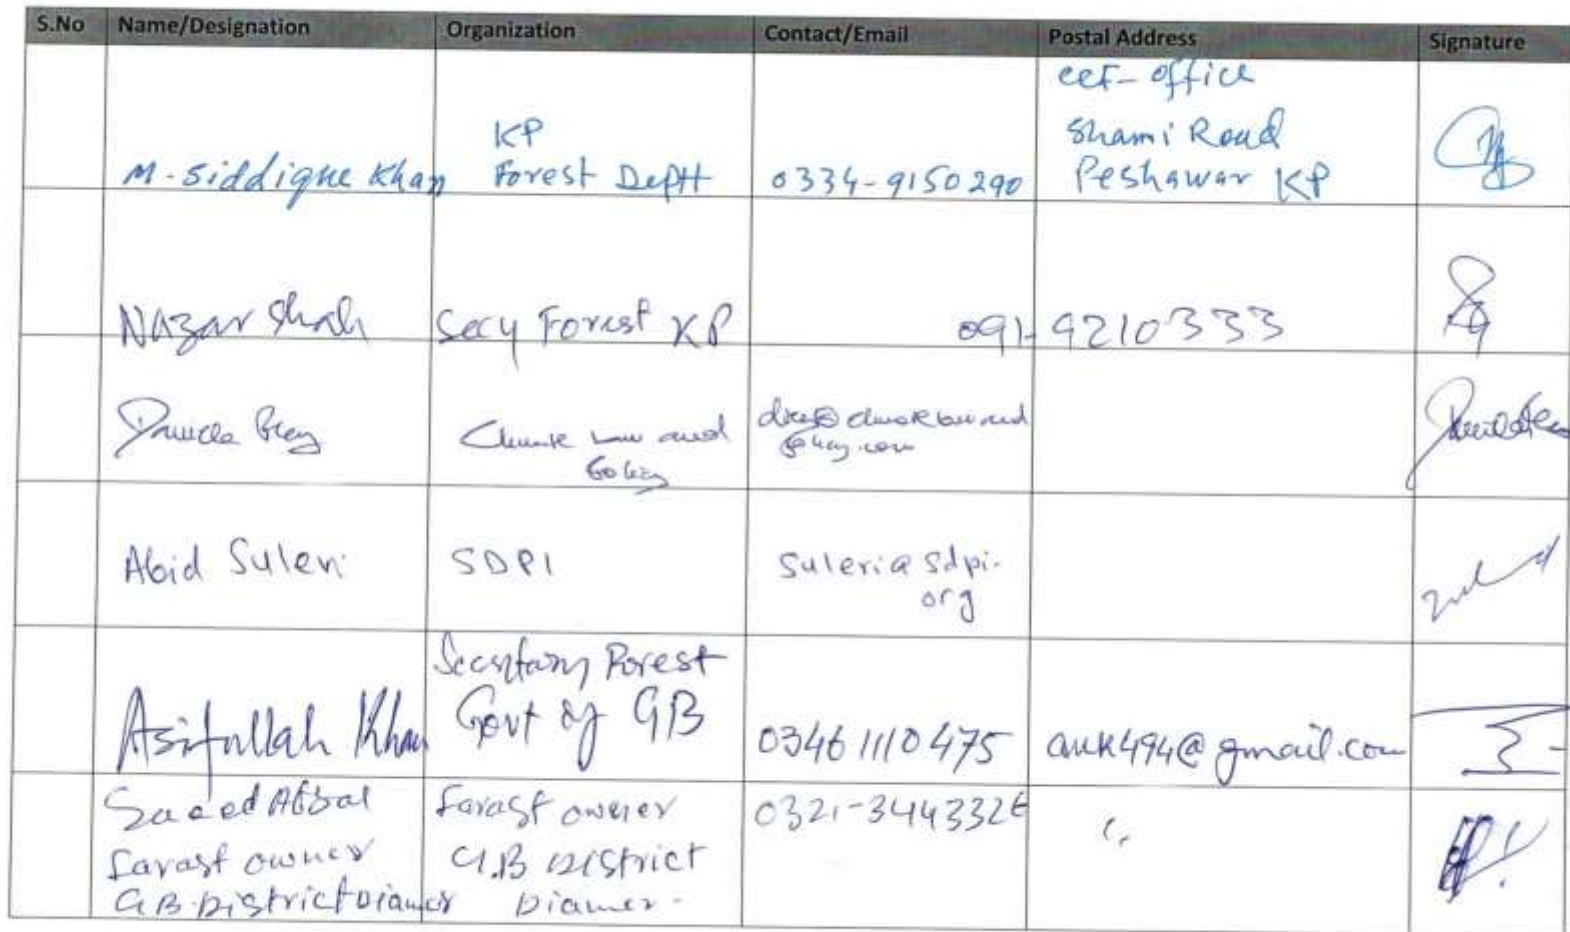 S.No Name/Designation Organization Contact/Email Postal Address Signature
M. Siddique Khan
KP
Forest Deptt
0334-9150290
CCF-office
Shami Road
Peshawar KP
Nazar Shah
Secy Forest KP
091-9210333
Law and
Abid Suleri
SDPI
suleri@sdpi.
org
Asifullah Khan
Secretary Forest
Govt of GB
03461110475
auk494@gmail.com
Saeed
Farast owner
GB District Diamer
Farast owner
G.B District
Diamer.
0321-3443326